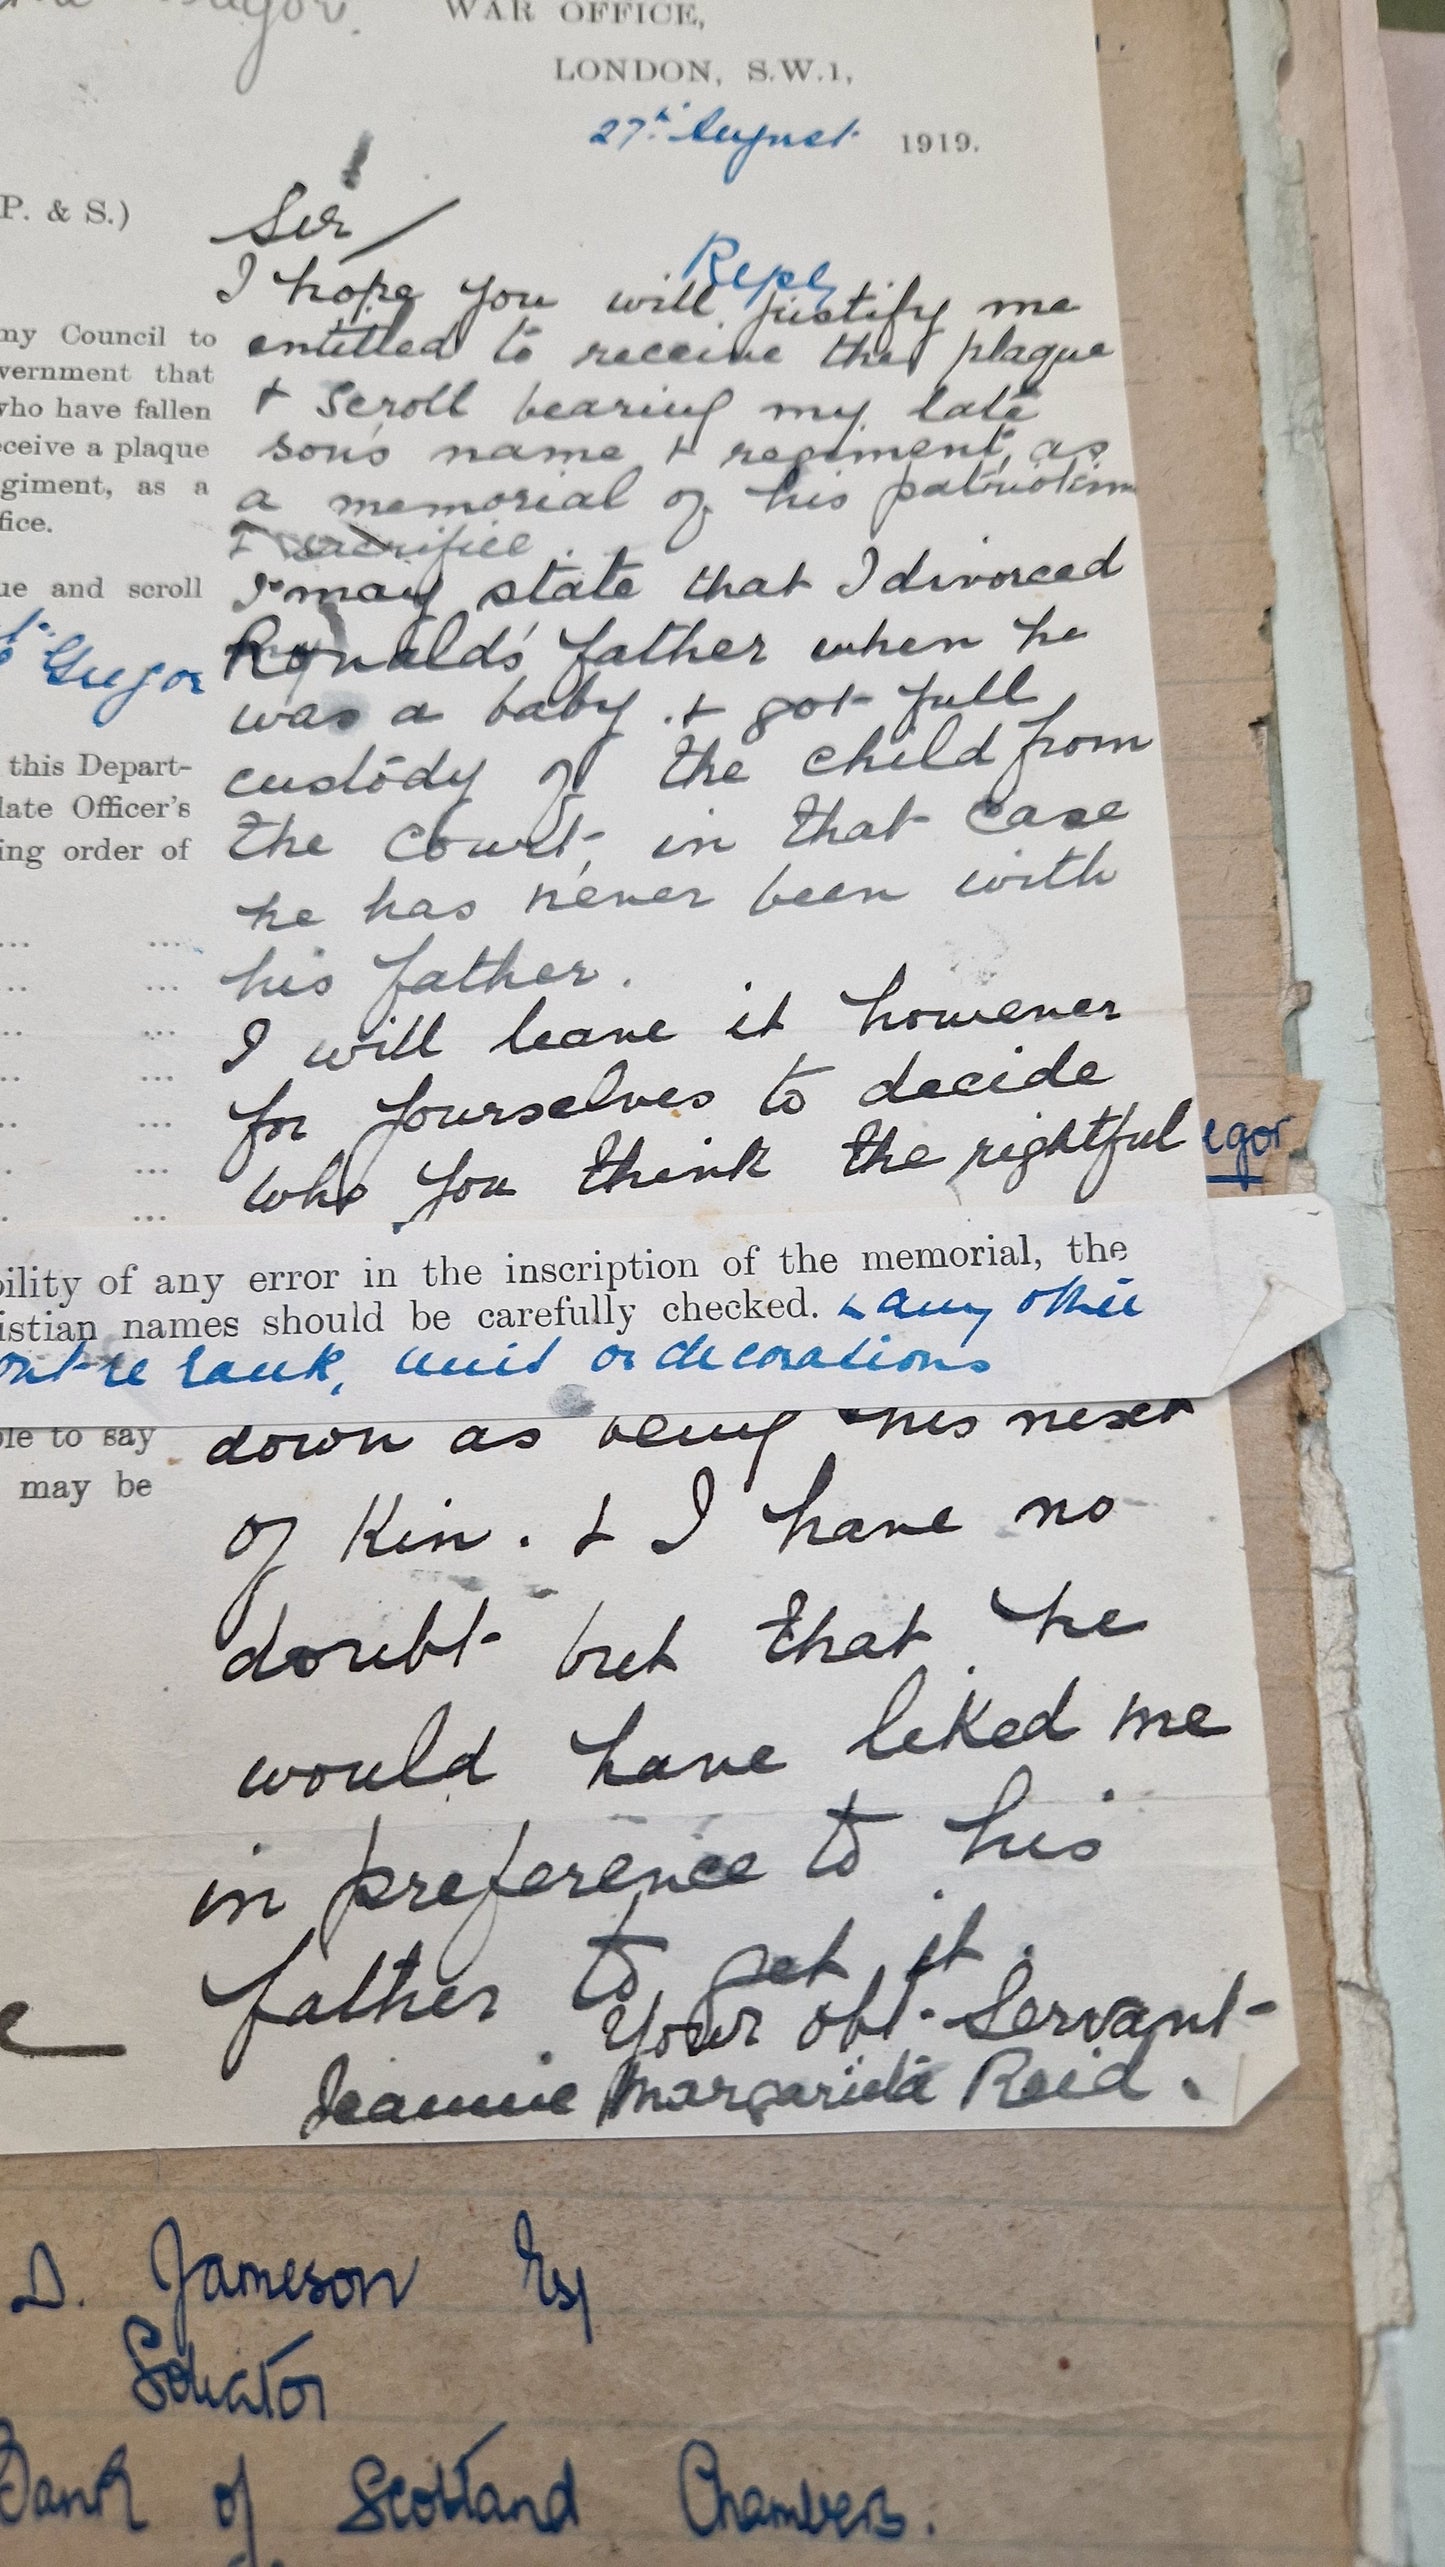 WAR OFFICE,
LONDON, S.W.1,
27th August 1919.
P. & S.)
Sir
Reply
I hope you will justify me
my Council to
entitled to receive the plaque
vernment that
who have fallen
& scroll bearing my late
eceive a plaque
son's name & regiment, as
giment, as a
a memorial of his patriotism
fice.
& sacrifice
ue and scroll
I may state that I divorced
Gregor
Ronalds' father when he
was a baby. & got full
this Depart-
custody of the child from
late Officer's
the court, in that case
ing order of
he has never been with
his father.
I will leave it however
for yourselves to decide
who you think the rightful
egor
bility of any error in the inscription of the memorial, the
istian names should be carefully checked. & any other
rank, unit or decorations
ple to say
down as being his next
may be
of Kin. & I have no
doubt but that he
would have liked me
in preference to his
father to get it.
Your obt. Servant
Jeannie Margarieta Reid.
D. Jameson Esq
Solicitor
Bank of Scotland Chambers.